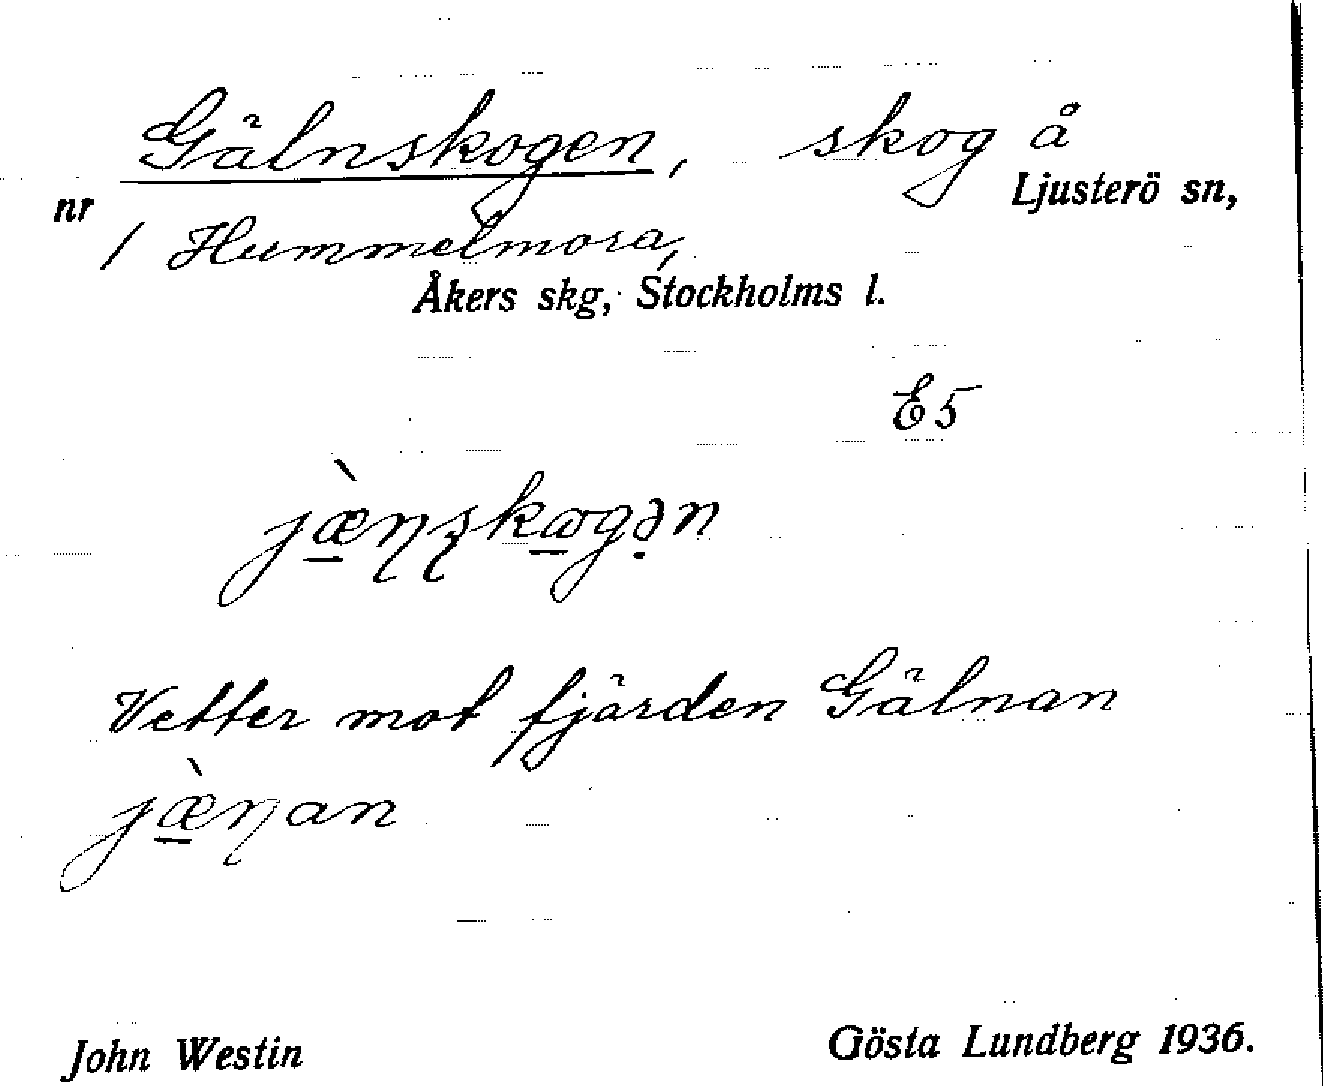 Gälnskogen, skog å
nr Ljusterö sn,
1 Hummelmora,
Åkers skg, Stockholms l.
E5
jæ̠̀ɳʂkɷ̠gə̣n
Vetter mot fjärden Gälnan
jæ̠̀ɳan
John Westin Gösta Lundberg 1936.